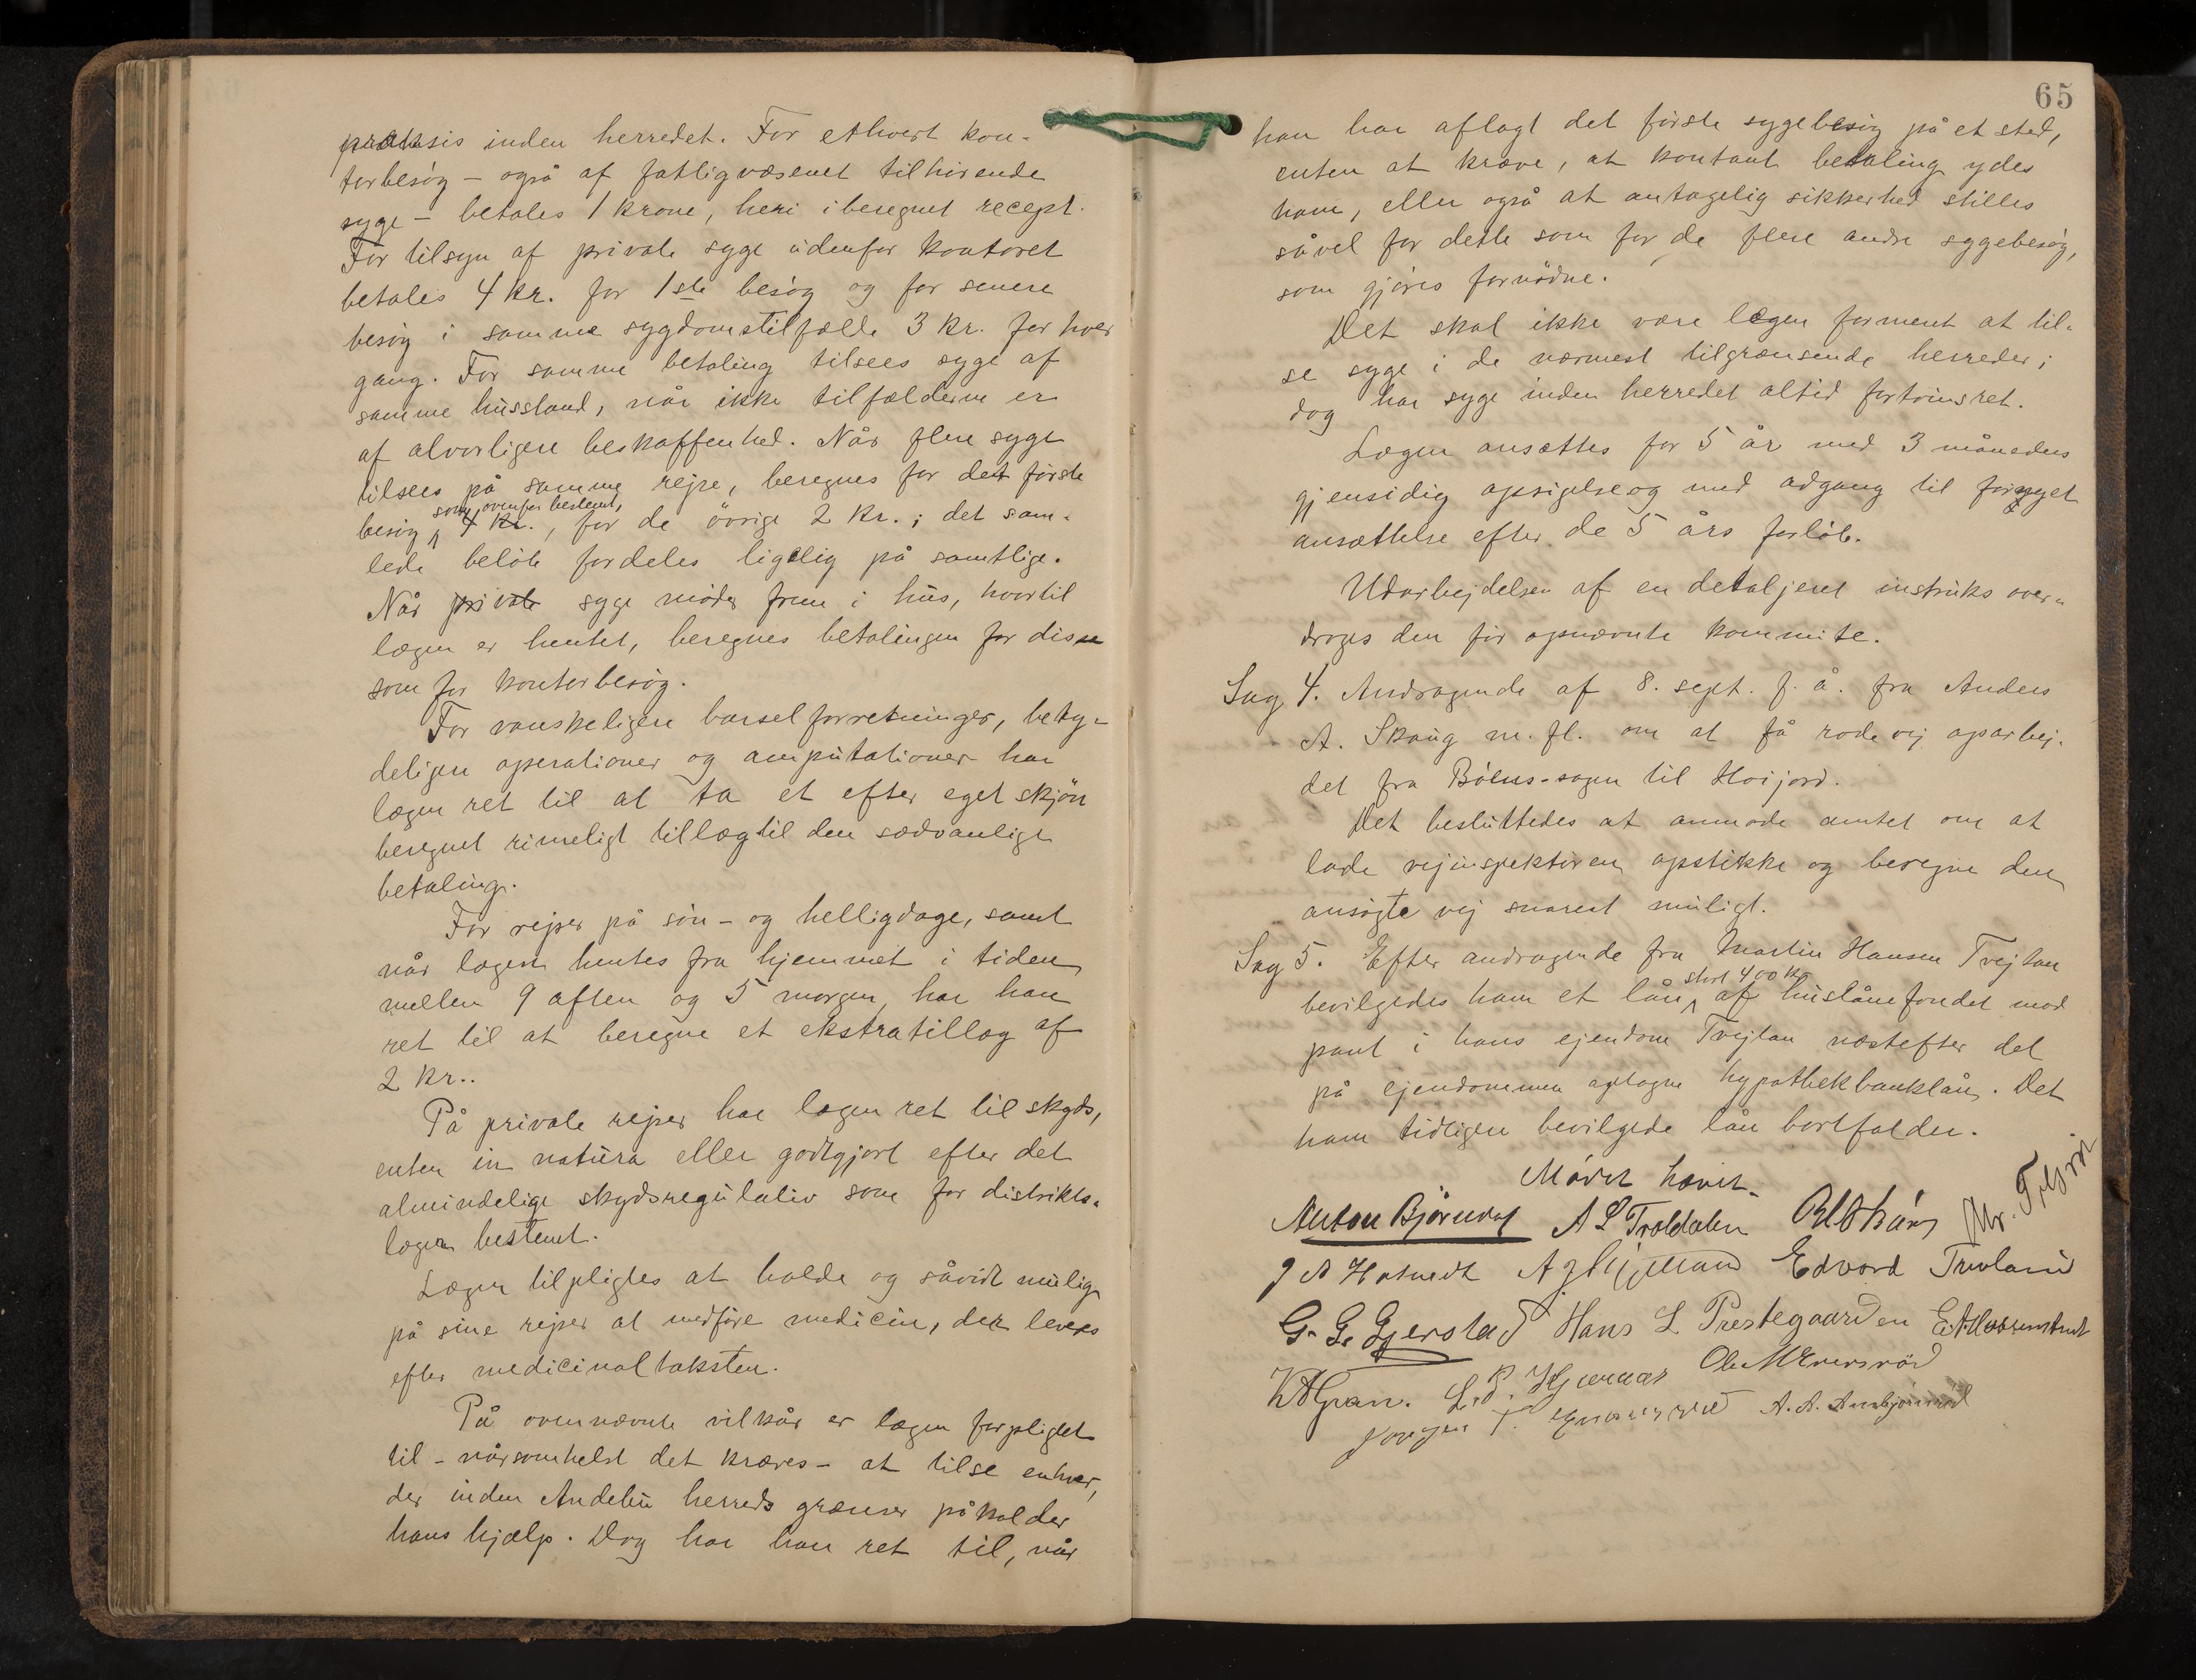 praksis inden herredet. For ethvert kon-
torbesøg – også af fattigvæsenet tilhørende
syge – betales 1 krone, heri iberegnet recept.
For tilsyn af private syge udenfor kontoret
betales 4 kr. for 1ste besøg og for senere
besøg i samme sygdomstilfælde 3 kr. for hver
gang. For samme betaling tilsees syge af
samme husstand, når ikke tilfælderne er
af alvorligere beskaffenhed. Når flere syge
tilsees på samme rejse, beregnes for det første
som ovenfor bestemt,
besøg 4 kr., for de øvrige 2 kr.; det sam-
lede beløb fordeles ligelig på samtlige.
Når private syge møder frem i hus, hvortil
lægen er hentet, beregnes betalingen for disse
som for kontorbesøg.
For vanskeligere barselforretninger, bety-
deligere operationer og amputationer har
lægen ret til at ta et efter eget skjøn
beregnet rimeligt tillæg til den sædvanlige
betaling.
For rejser på søn- og helligdage, samt
når lægen hentes fra hjemmet i tiden
mellem 9 aften og 5 morgen har han
ret til at beregne et ekstratillæg af
2 kr..
På private rejser har lægen ret til skyds,
enten in natura eller godtgjort efter det
almindelige skydsregulativ som for distrikts-
læger bestemt.
Lægen tilpligtes at holde og såvidt mulig
på sine rejser at medføre medicin, der leveres
efter medicinaltaksten.
På ovennævnte vilkår er lægen forpligtet
til – nårsomhelst det kræves – at tilse enhver,
der inden Andebu herreds grænser påkalder
hans hjælp. Dog har han ret til, når
65
han har aflagt det første sygebesøg på et sted,
enten at kræve, at kontant betaling ydes
ham, eller også at antagelig sikkerhed stilles
såvel for dette som for de flere andre sygebesøg,
som gjøres fornødne.
Det skal ikke være lægen forment at til-
se syge i de nærmest tilgrænsende herreder;
dog har syge inden herredet altid fortrinsret.
Lægen ansættes for 5 år med 3 måneders
gjensidig opsigelse og med adgang til fornyet
ansættelse efter de 5 års forløb.
Udarbejdelsen af en detaljeret instruks over-
drages den før opnævnte kommite.
Sag 4. Andragende af 8. sept. f. å. fra Anders
A. Skaug m. fl. om at få rodevej oparbej-
det fra Bølus-sagen til Høijord.
Det besluttedes at anmode amtet om at
lade vejinspektøren opstikke og beregne den
ansøgte vej snarest muligt.
Sag 5. Efter andragende fra Martin Hansen Trejtan
stort 400 kr
bevilgedes ham et lån af huslånefondet mod
pant i hans ejendom Trejtan næstefter det
på ejendommen optagne hypothekbanklån. Det
ham tidligere bevilgede lån bortfalder.
Mødet hævet.
Anton Bjørndal A L Troldalen
Edvard Trevland
G. G. Gjerstad Hans L Prestegaarden
K A Gran. L. P. Ole M
A. A.